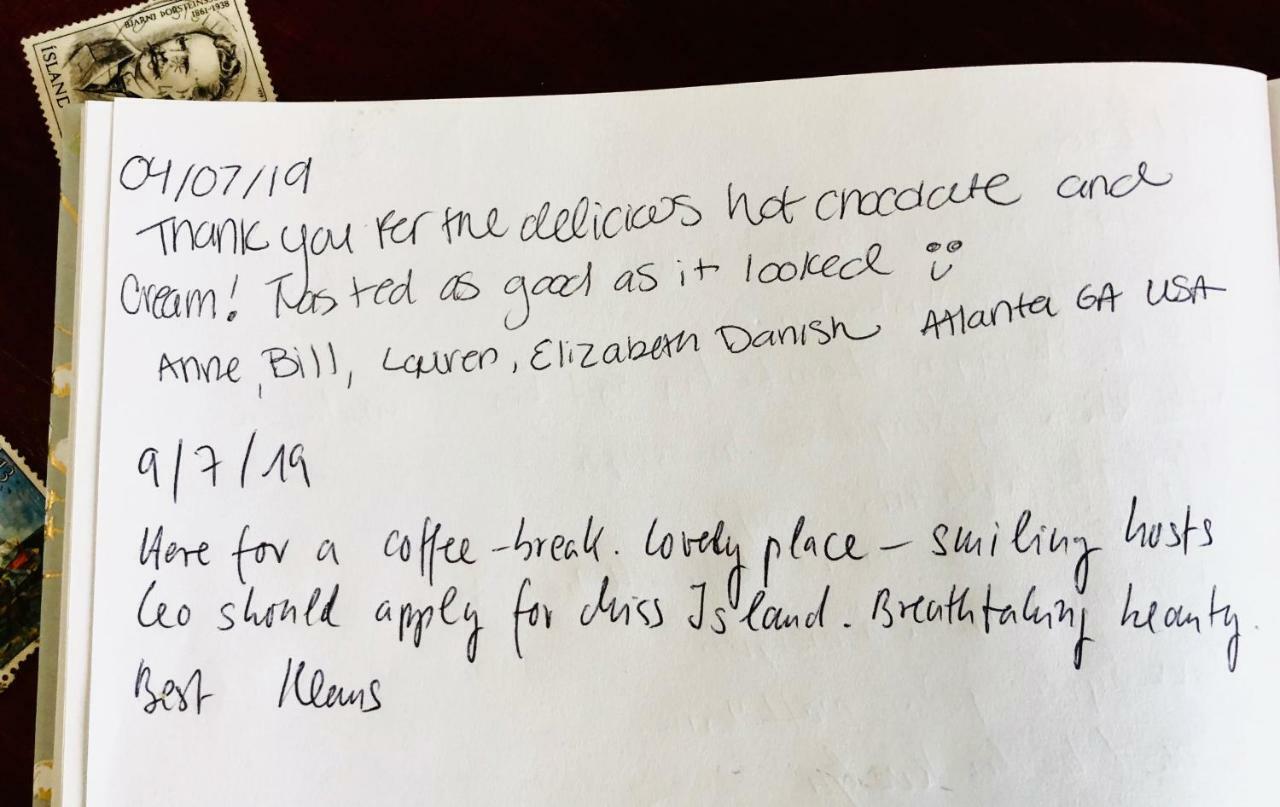 BJARNI ÞORSTEINS
1861-1938
ÍSLAND
04/07/19
Thank you for the delicious hot chocolate and
Cream! Tasted as good as it looked
Anne, Bill, Lauren, Elizabeth Danish Atlanta GA USA
9/7/19
Here for a coffee-break. lovely place – smiling hosts
Leo should apply for Miss Island. Breathtaking beauty.
Best Klaus
13